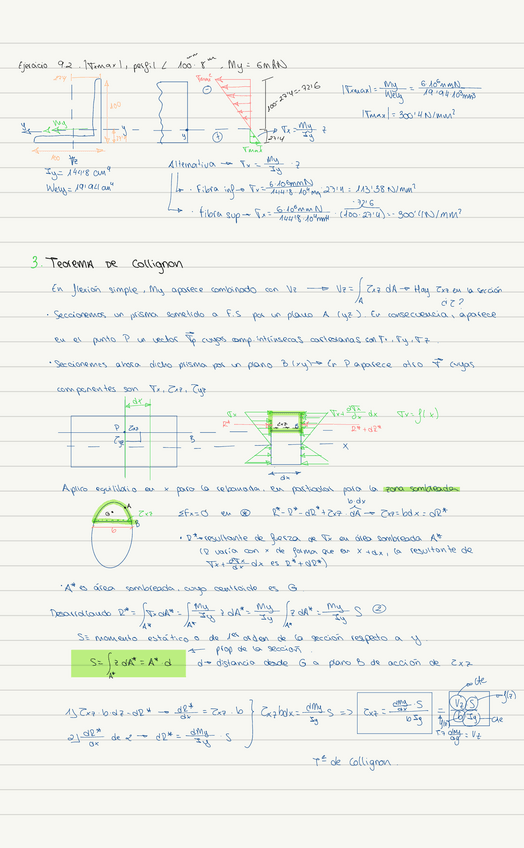 Ejercicio 9.2. |σxmax|, perfil L 100·8 mm. My = 6mkN
100
100
27'4
My
y
y
z
σmax
100-27'4=72'6
27'4
σx = My/Iy z
|σxmax| = My/Wely = 6·10⁶mmN/19'94·10³mm³
|σmax| = 300'4 N/mm²
Iy = 144'8 cm⁴
Wely = 19'94 cm³
Alternativa → σx = My/Iy · z
· Fibra inf → σx = 6·10⁶mmN/144'8·10⁴mm⁴ 27'4 = 113'38 N/mm²
· Fibra sup → σx = 6·10⁶mmN/144'8·10⁴mm⁴ · (100-27'4) = -300'4 N/mm²
72'6
3. TEOREMA DE COLLIGNON
En flexión simple, My aparece combinado con Vz → Vz = ∫A τxz dA → Hay τxz en la sección
· Seccionemos un prisma sometido a F.S por un plano A (yz). En consecuencia, aparece
en el punto P un vector σp cuyas comp. intrínsecas cartesianas son
· Seccionemos ahora dicho prisma por un plano B (xy) → En P aparece otro cuyas
componentes son
dx
P τxz
B
σx
R*
σx + dσx/dx dx
R* + dR*
σx = f(x)
x
dx
Aplico equilibrio en x para la rebanada. En particular para la zona sombreada
A
B
b
τxz
ΣFx=0 en R* - R* - dR* + τxz · dA → τxz b dx = dR*
b·dx
· R* → resultante de fuerza de σx en área sombreada A*
(R varía con x de forma que en x+dx, la resultante de
σx + dσx/dx dx es R* + dR*)
· A* es área sombreada, cuyo centroide es G
Desarrollando R* = ∫A* σx dA* = ∫A* My/Iy z dA* = My/Iy ∫A* z dA* = My/Iy S ②
S = momento estático o de 1er orden de la sección respecto a y.
prop de la sección
S = ∫A* z dA* = A* · d
d → distancia desde G a plano B de acción de τxz
1) τxz · b · dx = dR* → dR*/dx = τxz · b
2) dR*/dx de 2 → dR* = dMy/Iy S
τxz b dx = dMy/Iy S => τxz = dMy/dx · S / b Iy = Vz S / b Iy
cte
f(z)
cte
dMy/dx = Vz
Tª de Collignon.